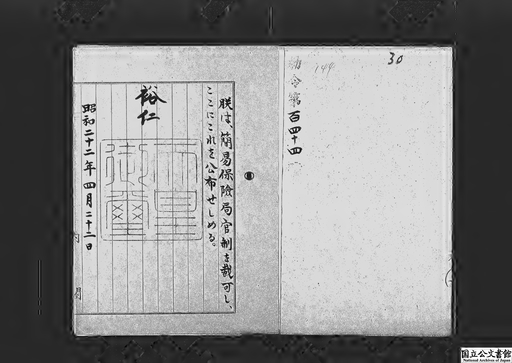 30
144
勅令第百四十四
朕は、簡易保險局官制を裁可し、
ここにこれを公布せしめる。
裕仁
天皇御璽
昭和二十二年四月二十二日
内閣
国立公文書館
National Archives of Japan